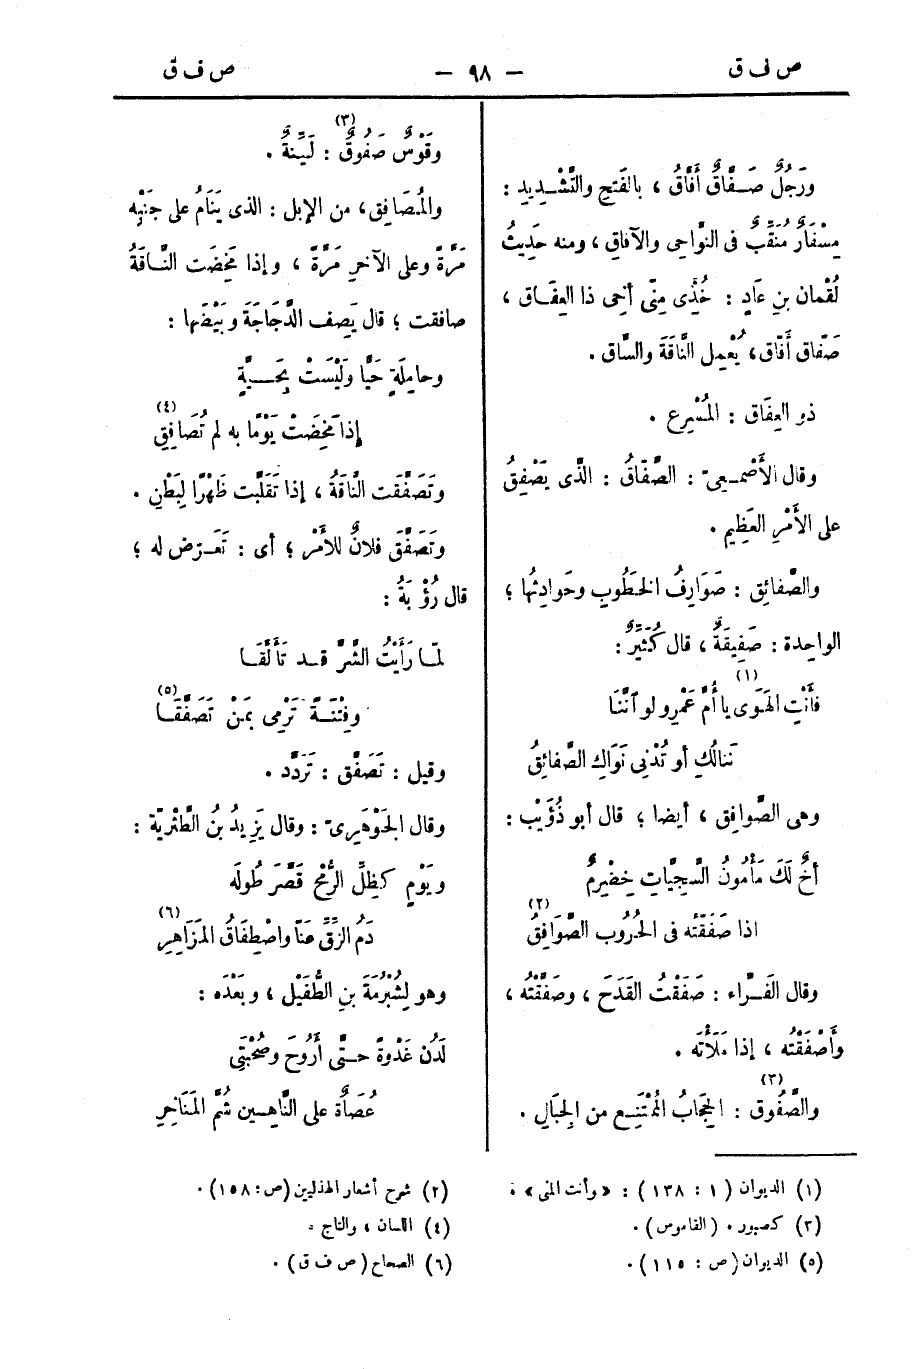 ص ف ق — ٩٨ — ص ف ق
ورَجُلٌ صَفَّاقٌ أَفَّاقٌ ، بالفَتحِ والتَّشْدِيدِ :
مِسْفَارٌ مُنَقِّبٌ فى النَّواحِى والآفاقِ ، ومنه حَدِيثُ
لُقْمان بنِ عَادٍ : خُذِى مِنّى أخِى ذا العِفَاق ،
صَفّاق أَفّاق ، يُعْمِل النَّاقَةَ والسَّاق .
ذو العِفَاق : المُسْرِع .
وقال الأَصْمَعِىّ : الصَّفّاقُ : الذى يَصْفِقُ
على الأَمْرِ العَظِيم .
والصَّفائِق : صَوَارِفُ الخطُوبِ وحَوادِثُها ؛
الواحِدة : صَفِيقَةٌ ، قال كُثَيِّرٌ :
فأَنْتِ الهَوَى يا أُمَّ عَمْرٍو لو آنَّنَا (١)
نَنالُكِ أو تُدْنِى نَوَاكِ الصَّفائِقُ
وهى الصَّوافِق ، أيضا ؛ قال أبو ذُؤَيْب :
أخٌ لَكَ مَأْمُونُ السَّجِيَّاتِ خِضْرِمٌ
اذا صَفَقَتْه فى الحُرُوب الصَّوَافِقُ (٢)
وقال الفَرّاء : صَفَقْتُ القَدَحَ ، وصَفَّقْتُه ،
وأَصْفَقْتُه ، إذا مَلَأْتَه .
والصَّفُوق (٣) : الحِجَابُ المُمْتَنِع من الجِبَالِ .
وقَوْسٌ صَفُوقٌ (٣) : لَيِّنةٌ .
والمُصَافِق ، من الإبل : الذى يَنَامُ على جَنْبِه
مَرَّةً وعلى الآخرِ مَرَّةً ، وإذا مَخِضَت النَّاقَةُ
صافقت ؛ قال يَصف الدَّجَاجَةَ وبَيْضَها :
وحامِلَةٍ حَيًّا ولَيْسَتْ بِحَيَّةٍ
إذا مَخِضَتْ يَوْمًا به لم تُصَافِقِ (٤)
وتَصَفَّقَت النَّاقةُ ، إذا تَقَلَّبَت ظَهْرًا لِبَطْنِ .
وتَصَفَّقَ فلانٌ للأَمْرِ ؛ أى : تَعَرّض له ؛
قال رُؤْبَةُ :
لمّا رَأَيْتُ الشَّرَّ قد تَأَلَّقَا
وفِتْنَةً تَرْمِى بمَنْ تَصَفَّقَا (٥)
وقيل : تَصَفَّق : تَرَدَّد .
وقال الجَوْهَرِىّ : وقال يَزِيدُ بنُ الطَّثْرِيّة :
ويَوْمٍ كَظِلِّ الرُّمْحِ قَصَّرَ طُولَه
دَمُ الزِّقِّ عَنّا واصْطِفَاقُ المَزَاهِرِ (٦)
وهو لِشُبْرُمَةَ بنِ الطُّفَيْل ، وبَعْدَه :
لَدُن غَدْوَةً حتَّى أَرُوحَ وصُحْبَتِى
عُصَاةٌ على النَّاهِين شُمُّ المَنَاخِرِ
(١) الديوان ( ١ : ١٣٨ ) : « وأنت المنى » .
(٢) شرح أشعار الهذليين (ص : ١٥٨) .
(٣) كصبور . (القاموس) .
(٤) اللسان ، والتاج .
(٥) الديوان (ص : ١١٥) .
(٦) الصحاح (ص ف ق) .